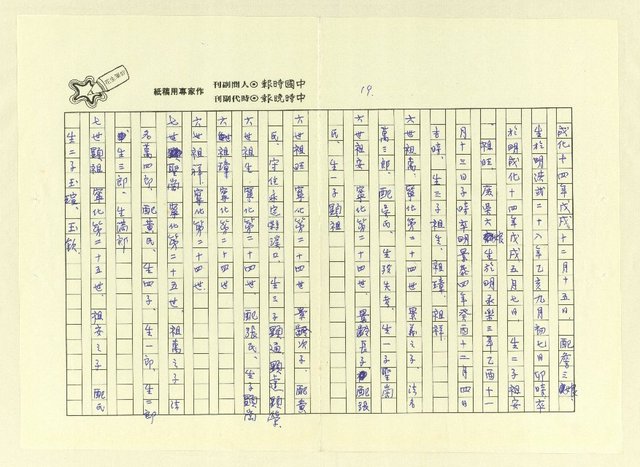 中國時報⊙人間副刊
中時晚報⊙時代副刊
作家專用稿紙
19.
成化十四年戊戌十二月十五日。配詹三娘
生於明洪武二十八年乙亥九月初七日卯時卒
於明成化十四年戊戌五月七日。生二子祖安
祖旺。 生於明永樂三年乙酉十一
月十三日子時卒明景泰四年癸酉十二月四日
吉時。生三子祖生、祖瑋、祖祥
六世祖萬、寧化第二十四世 景 之子。法名
萬三郎。配吳氏。生 失考。生一子聖崗
六世祖安、寧化第二十四世。景齡長子 配張
氏。生一子顯祖
六世祖旺 寧化第二十四世 景齡次子。配黃
氏。守住永定 溪口。生三子顯通顯達顯榮
六世祖生、寧化第二十四世。配張氏。生子顯崗
六世祖瑋 寧化第二十四世
六世祖祥、寧化第二十四世
七世聖崗 寧化第二十五世。祖萬之子 法
名萬四郎 配黃氏。生四子。生一郎、生二郎
生三郎、生滿郎
七世顯祖 寧化第二十五世。祖安之子 配氏
生二子玉瑄、玉欽